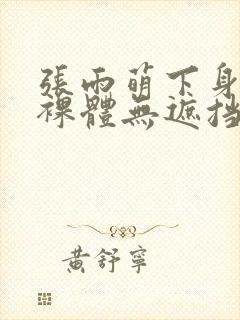 張雨萌下身
裸體無遮挡
黃舒寧